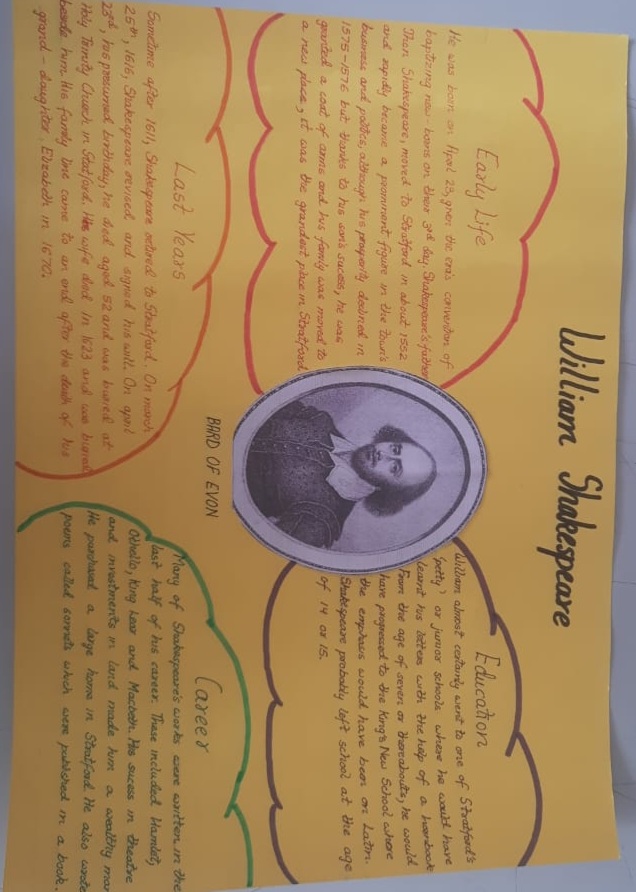 William Shakespeare
Early Life
He was born on April 23, given the era's convention of
baptizing new-borns on their 3rd day. Shakespeare's father
Then Shakespeare, moved to Stratford in about 1552
and rapidly became a prominent figure in the town's
business and politics, although his prosperity declined in
1575-1576 but thanks to his son's sucess, he was
granted a coat of arms and his family was moved to
a new place, it was the grandest place in Stratford.
Education
William almost certainly went to one of Stratford's
'petty' or junior schools where he would have
learnt his letters with the help of a hornbook
From the age of seven or thereabouts, he would
have progressed to the King's New School where
the emphasis would have been on Latin.
Shakespeare probably left school at the age
of 14 or 15.
BARD OF EVON
Last Years
Sometime after 1611, Shakespeare retired to Stratford. On march
25th, 1616, Shakespeare revised and signed his will. On april
23rd, his presumed birthday, he died aged 52 and was buried at
Holy Trinity Church in Stratford. His wife died in 1623 and was buried
beside him. His family line came to an end after the death of his
grand-daughter Elizabeth in 1670.
Career
Many of Shakespeare's works were written in the
last half of his career. These included Hamlet,
Othello, King Lear and Macbeth. His sucess in theatre
and investments in land made him a wealthy man
He purchased a large home in Stratford. He also wrote
poems called sonnets which were published in a book.